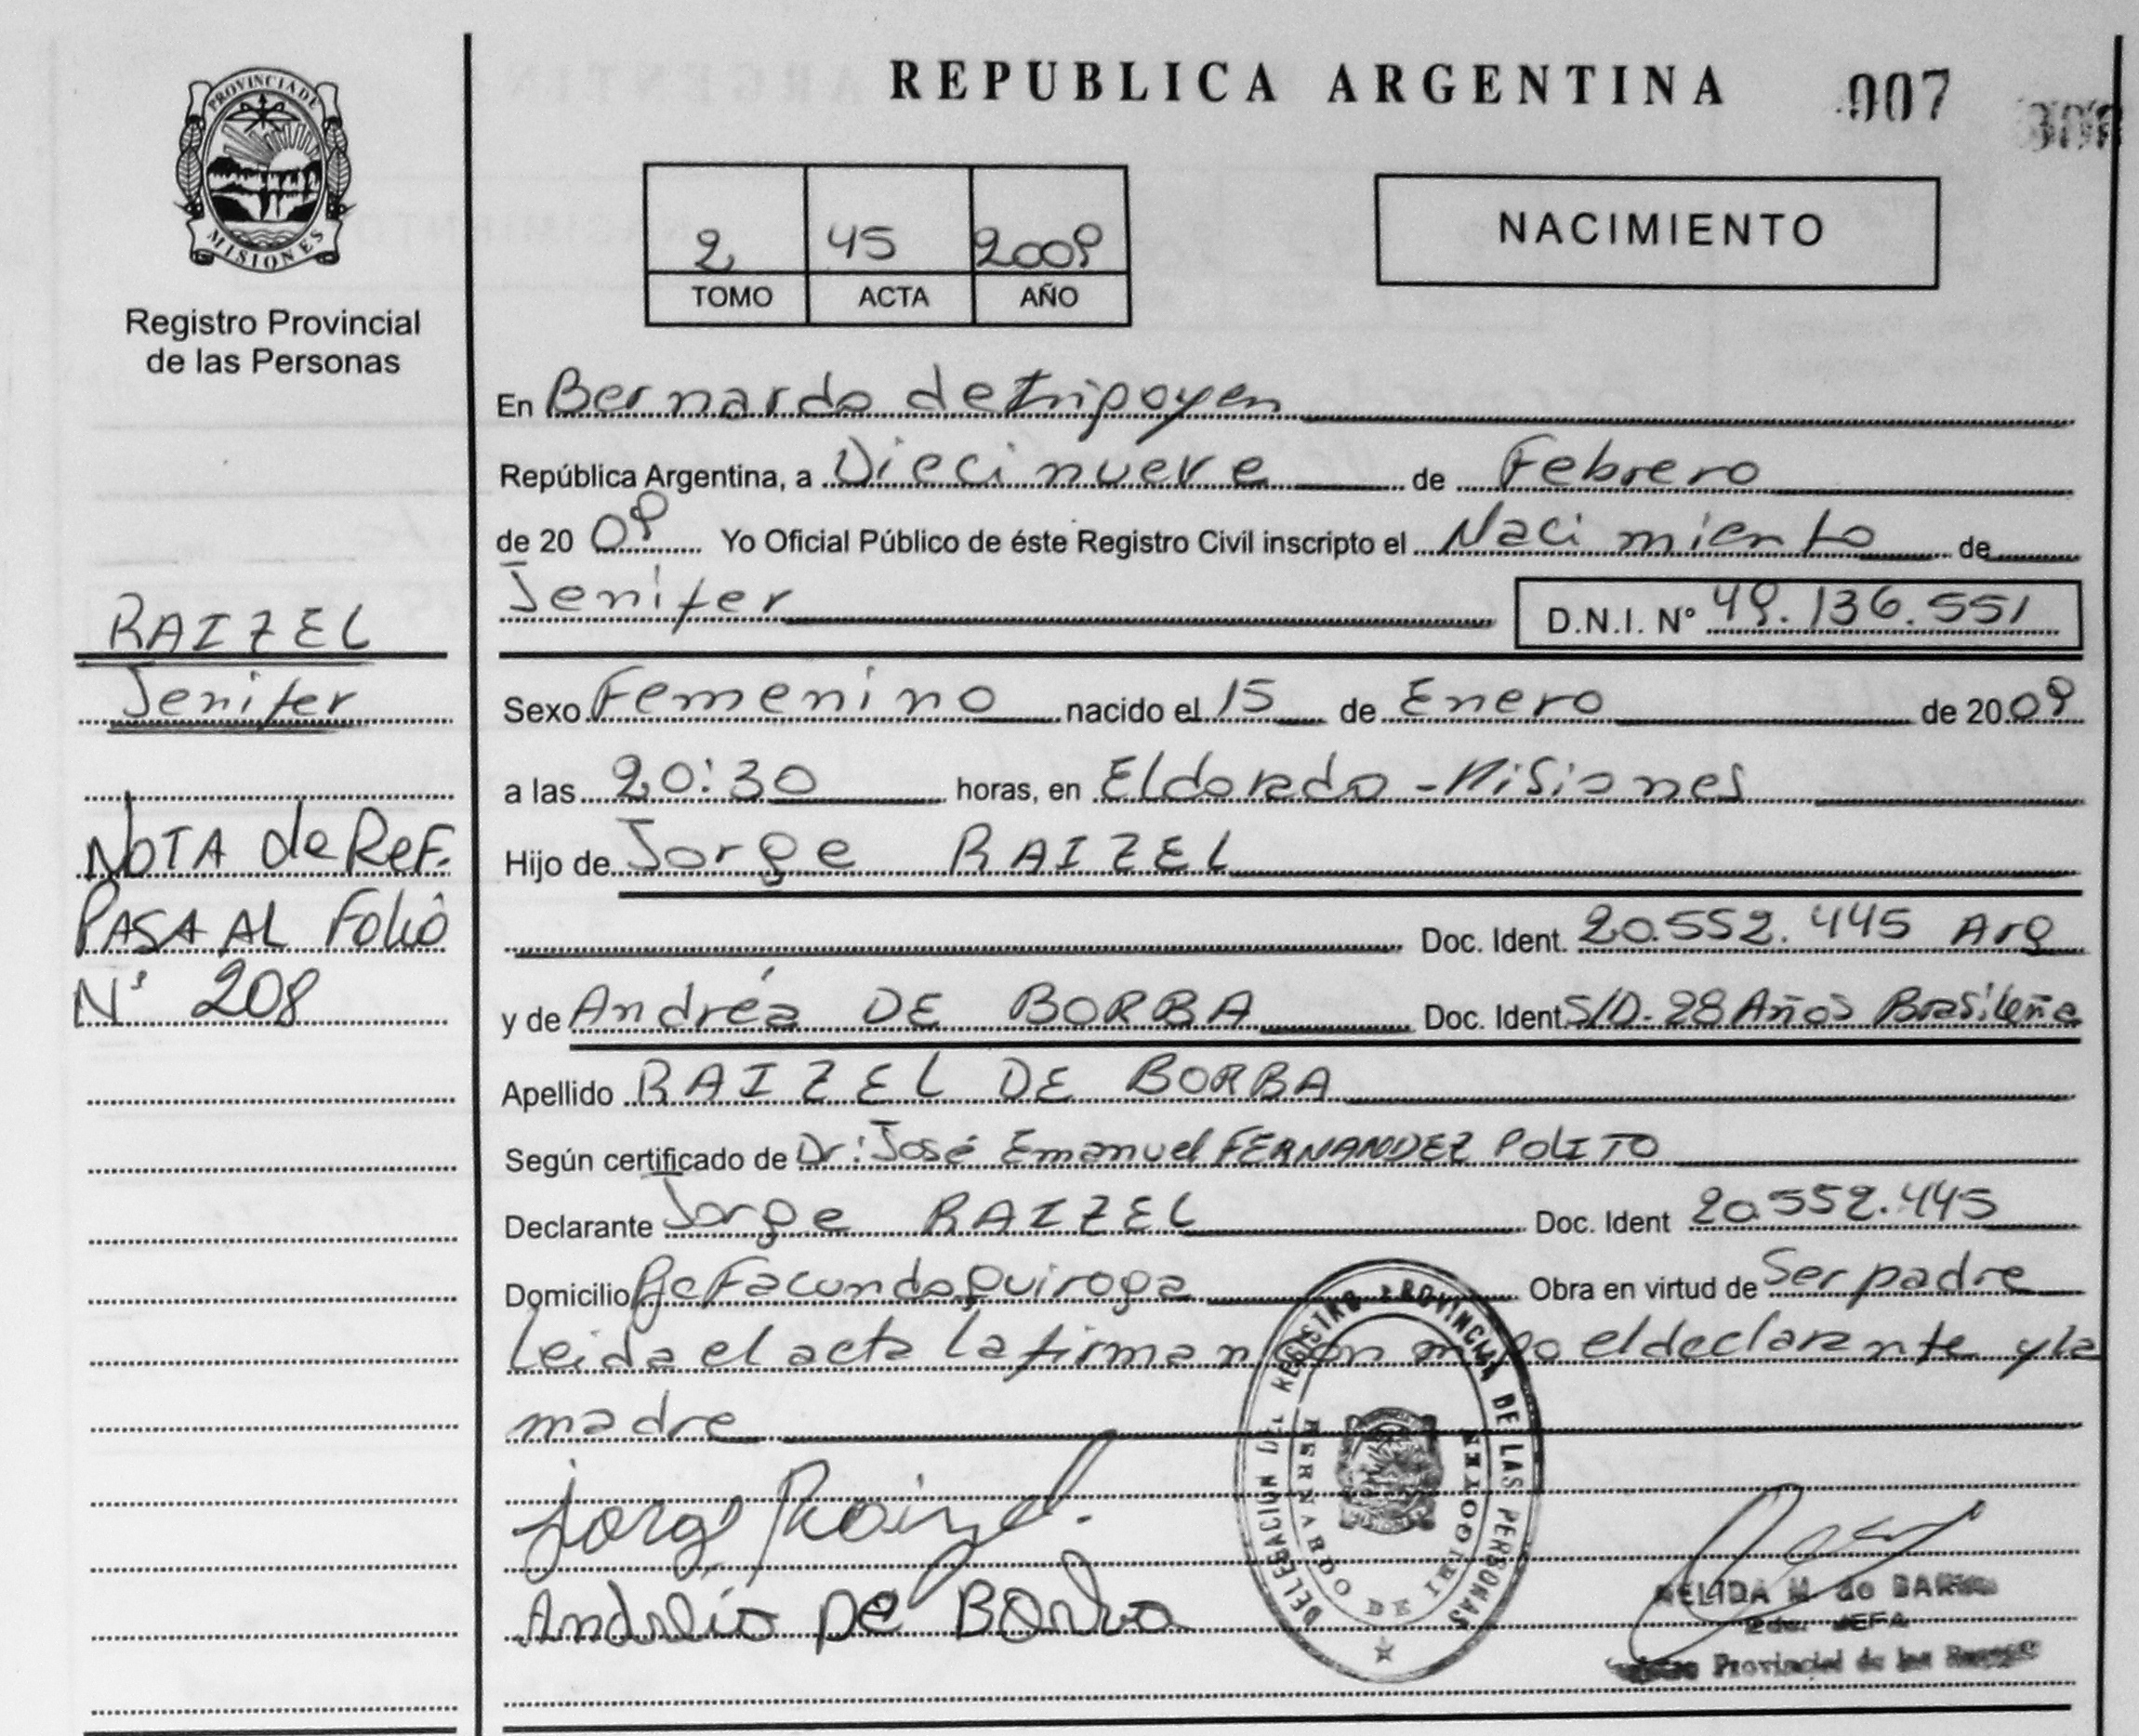 REPUBLICA ARGENTINA
007
PROVINCIA DE
MISIONES
Registro Provincial
de las Personas
2 45 2009
TOMO ACTA AÑO
NACIMIENTO
En Bernardo de Irigoyen
República Argentina, a Diecinueve de Febrero
de 2009 Yo Oficial Público de éste Registro Civil inscripto el Nacimiento de
Jenifer D.N.I. Nº 49.136.551
RAIZEL
Jenifer
NOTA de Ref.
PASA AL Folio
Nº 208
Sexo Femenino nacido el 15 de Enero de 2009
a las 20:30 horas, en Eldorado - Misiones
Hijo de Jorge RAIZEL
Doc. Ident. 20.552.445 Arg
y de Andréa DE BORBA Doc. Ident S/D. 28 Años Brasileña
Apellido RAIZEL DE BORBA
Según certificado de Dr: José Emanuel FERNANDEZ POLITO
Declarante Jorge RAIZEL Doc. Ident 20.552.445
Domicilio Pje Facundo Quiroga Obra en virtud de Ser padre
Leida el acta la firman con migo el declarante y la
madre
Jorge Raizel.
Andréia De Borba
DELEGACIÓN DEL REGISTRO PROVINCIAL DE LAS PERSONAS
BERNARDO DE IRIGOYEN
NELIDA M. de
2da. JEFA
Provincial de las